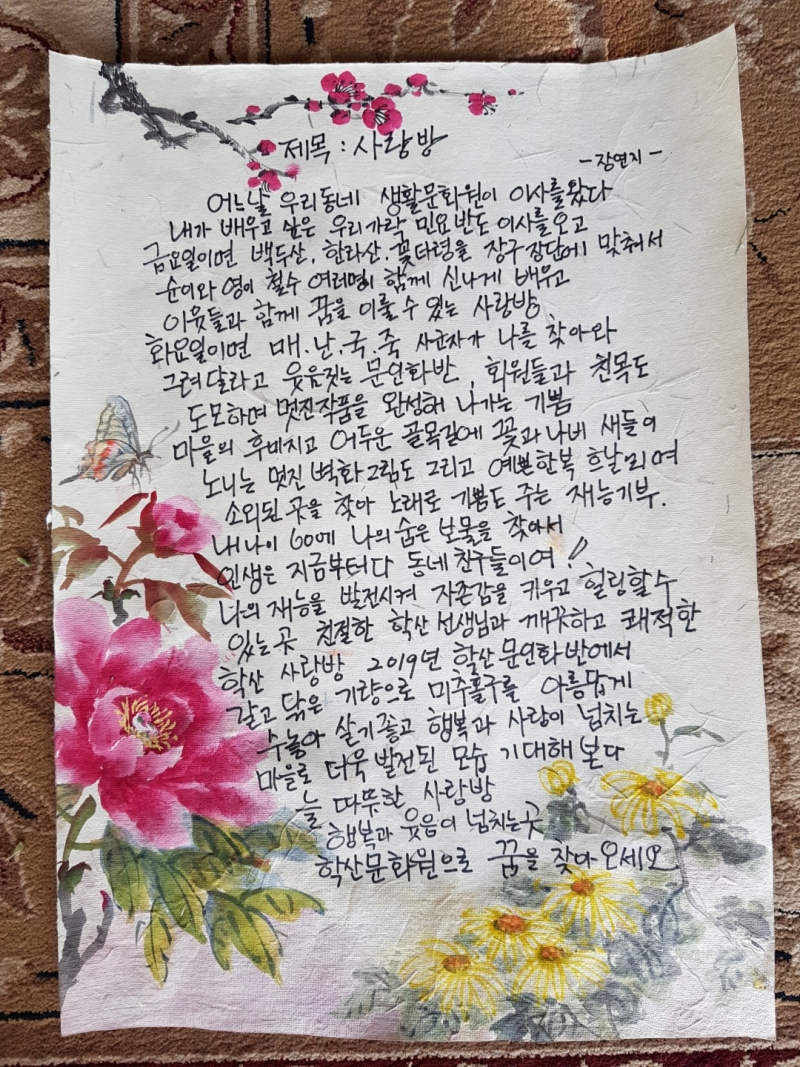 제목 : 사랑방
- 장연지 -
어느날 우리동네 생활문화원이 이사를왔다
내가 배우고 싶은 우리가락 민요반도 이사를오고
금요일이면 백두산, 한라산, 꽃타령을 장구장단에 맞춰서
순이와 영이 철수 여러명이 함께 신나게 배우고
이웃들과 함께 꿈을 이룰수 있는 사랑방
화요일이면 매.난.국.죽 사군자가 나를 찾아와
그려달라고 웃음짓는 문인화반, 회원들과 친목도
도모하며 멋진작품을 완성해 나가는 기쁨
마을의 후미지고 어두운 골목길에 꽃과 나비 새들이
노니는 멋진 벽화그림도 그리고 예쁜한복 흐날리며
소외된 곳을 찾아 노래로 기쁨도 주는 재능기부.
내나이 60에 나의 숨은 보물을 찾아서
인생은 지금부터다 동네친구들이여 !!
나의 재능을 발전시켜 자존감을 키우고 힐링할수
있는곳 친절한 학산선생님과 깨끗하고 쾌적한
학산 사랑방 2019년 학산문인화반에서
갈고 닦은 기량으로 미추홀구를 아름답게
수놓아 살기좋고 행복과 사랑이 넘치는
마을로 더욱발전된 모습 기대해본다
늘 따뜻한 사랑방
행복과 웃음이 넘치는곳
학산문화원으로 꿈을 찾아오세요